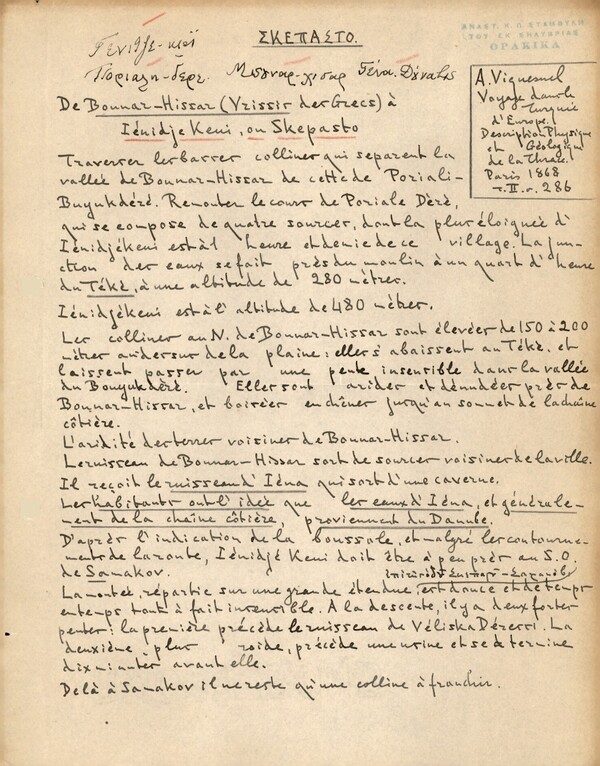 ΣΚΕΠΑΣΤΟ.
ΑΝΑΣΤ. Π. Π. ΣΤΑΜΟΥΛΗ
ΤΟΥ ΕΚ ΣΗΛΥΒΡΙΑΣ
ΘΡΑΚΙΚΑ
Γενίτζε-κιοϊ
Ποριαλη-δερε. Μπουναρ-χισαρ Γένα. Δούναβις
A. Viquesnel
Voyage dans la
Turquie
d'Europe.
Description Physique
et Géologique
de la Thrace.
Paris 1868
T. II. σ. 286
De Bounar-Hissar (Vrissis des Grecs) à
Iénidje Keui, ou Skepasto
Traverser les basses collines qui separent la
vallée de Bounar-Hissar de cette de Poriali-
Buyukdéré. Remonter le cours de Poriale Déré,
qui se compose de quatre sources, dont la plus éloignée d'
Iénidjékeui est à 1 heure et demie de ce village. La jun-
ction des eaux se fait près du moulin à un quart d'heure
du Téké, à une altitude de 280 mètres.
Iénidjékeui est à l'altitude de 480 mètres.
Les collines au N. de Bounar-Hissar sont élevées de 150 à 200
mètres au dessus de la plaine: elles s'abaissent au Téké, et
laissent passer par une pente insensible dans la vallée
du Bouyukdéré. Elles sont arides et dénudées près de
Bounar-Hissar, et boisées en chênes jusqu'au sommet de la chaîne
côtière.
L'aridité des terres voisines de Bounar-Hissar.
Le ruisseau de Bounar-Hissar sort de sources voisines de la ville.
Il reçoit le ruisseau d'Iéna qui sort d'une caverne.
Les habitants ont l'idée que les eaux d'Iéna, et générale-
ment de la chaîne côtière, proviennent du Danube.
D'après l'indication de la boussole, et malgré les contourne-
ments de la route, Iénidjé Keui doit être à peu près au S.O.
de Samakov.
La montée, répartie sur une grande étendue, est douce et de temps
en temps tout à fait insensible. A la descente, il y a deux fortes
pentes: la première précède le ruisseau de Véliska Déressi. La
deuxième, plus roide, précède une usine et se termine
dix minutes avant elle.
De là à Samakov il ne reste qu'une colline à franchir.